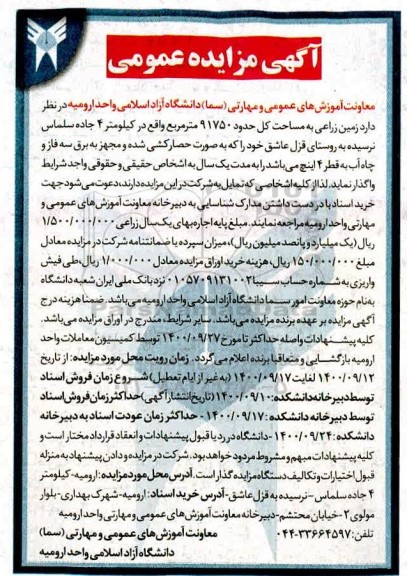 آگهی مزایده عمومی
معاونت آموزش های عمومی و مهارتی (سما) دانشگاه آزاد اسلامی واحد ارومیه در نظر
دارد زمین زراعی به مساحت کل حدود ۹۱۷۵۰ مترمربع واقع در کیلومتر ۴ جاده سلماس
نرسیده به روستای قزل عاشق خود را که به صورت حصارکشی شده و مجهز به برق سه فاز و
چاه آب به قطر ۴ اینچ می باشد را به مدت یک سال به اشخاص حقیقی و حقوقی واجد شرایط
واگذار نماید. لذا از کلیه اشخاصی که تمایل به شرکت در این مزایده دارند، دعوت می شود جهت
خرید اسناد با در دست داشتن مدارک شناسایی به دبیرخانه معاونت آموزش های عمومی و
مهارتی واحد ارومیه مراجعه نمایند. مبلغ پایه اجاره بهای یک سال زراعی ۱/۵۰۰/۰۰۰/۰۰۰
ریال (یک میلیارد و پانصد میلیون ریال)، میزان سپرده یا ضمانتنامه شرکت در مزایده معادل
مبلغ ۱۵۰/۰۰۰/۰۰۰ ریال، هزینه خرید اوراق مزایده معادل ۱/۰۰۰/۰۰۰ ریال، طی فیش
واریزی به شماره حساب سیبا ۰۱۰۵۷۰۹۱۳۱۰۰۲ نزد بانک ملی ایران شعبه دانشگاه
به نام حوزه معاونت امور سما دانشگاه آزاد اسلامی واحد ارومیه می باشد. ضمنا هزینه درج
آگهی مزایده بر عهده برنده مزایده می باشد. سایر شرایط، مندرج در اوراق مزایده می باشد.
کلیه پیشنهادات واصله حداکثر تا مورخ ۱۴۰۰/۰۹/۲۷ توسط کمیسیون معاملات واحد
ارومیه بازگشایی و متعاقبا برنده اعلام می گردد. زمان رویت محل مورد مزایده: از تاریخ
۱۴۰۰/۰۹/۱۲ لغایت ۱۴۰۰/۰۹/۱۷ (به غیر از ایام تعطیل) شروع زمان فروش اسناد
توسط دبیرخانه دانشکده: ۱۴۰۰/۰۹/۱۰ (تاریخ انتشار آگهی) حداکثر زمان فروش اسناد
توسط دبیرخانه دانشکده: ۱۴۰۰/۰۹/۱۷ - حداکثر زمان عودت اسناد به دبیرخانه
دانشکده: ۱۴۰۰/۰۹/۲۴ - دانشگاه در رد یا قبول پیشنهادات و انعقاد قرارداد مختار است و
کلیه پیشنهادات مبهم و مشروط مردود خواهد بود. شرکت در مزایده و دادن پیشنهاد به منزله
قبول اختیارات و تکالیف دستگاه مزایده گذار است. آدرس محل مورد مزایده: ارومیه - کیلومتر
۴ جاده سلماس - نرسیده به قزل عاشق - آدرس خرید اسناد: ارومیه - شهرک بهداری - بلوار
مولوی ۲ - خیابان محتشم - دبیرخانه معاونت آموزش های عمومی و مهارتی واحد ارومیه
تلفن: ۳۳۶۶۴۵۹۷-۰۴۴ معاونت آموزش های عمومی و مهارتی (سما)
دانشگاه آزاد اسلامی واحد ارومیه